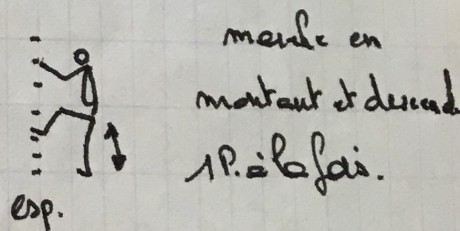 marche en
montant et descend
1P. à la fois.
esp.